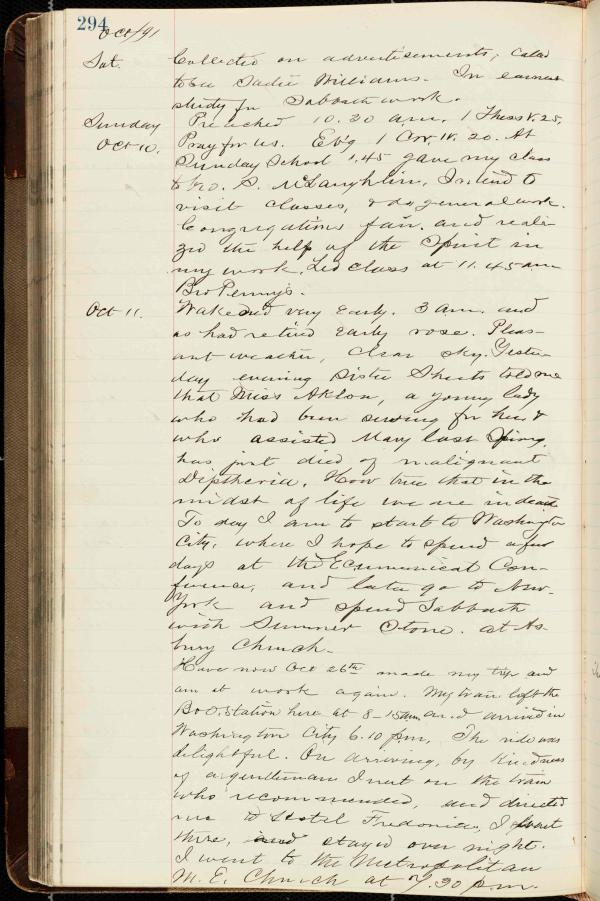 294
Oct/91
Sat. Collected on advertisements, called
to see Sadie Williams. In earnest
study for Sabbath work.
Sunday Preached 10.30 a.m. 1 Thess V. 25,
Oct 10. Pray for us. Ev'g 1 Cor. IV. 20. At
Sunday School 1,45 gave my class
to Bro. S. McLaughlin, Intend to
visit classes, & do general work.
Congregations fair. and reali-
zed the help of the Spirit in
my work. Led class at 11.45 am
Bro Penny's.
Oct 11. Wakened very early. 3 am. and
as had retired early rose. Pleas-
ant weather, clear sky. Yester-
day evening Sister Sheets told me
that Miss Aklon, a young lady
who had been sewing for her &
who assisted Mary last Spring
has just died of malignant
Diptheria. How true that in the
midst of life we are in death
To day I am to start to Washington
City, where I hope to spend a few
days at the Ecumenical Con-
ference, and later go to New-
York and spend Sabbath
with Sumner Stone. at As-
bury Church.
Have now Oct 26th made my trip and
am at work again. My train left the
B&O. Station here at 8-15 am and arrived in
Washington City 6.10 p.m. The ride was
delightful. On arriving, by kindness
of a gentleman I met on the train
who recommended, and directed
me to Hotel Fredonia, I went
there, and stayed over night.
I went to the Metropolitan
M. E. Church at 7.30 p.m.